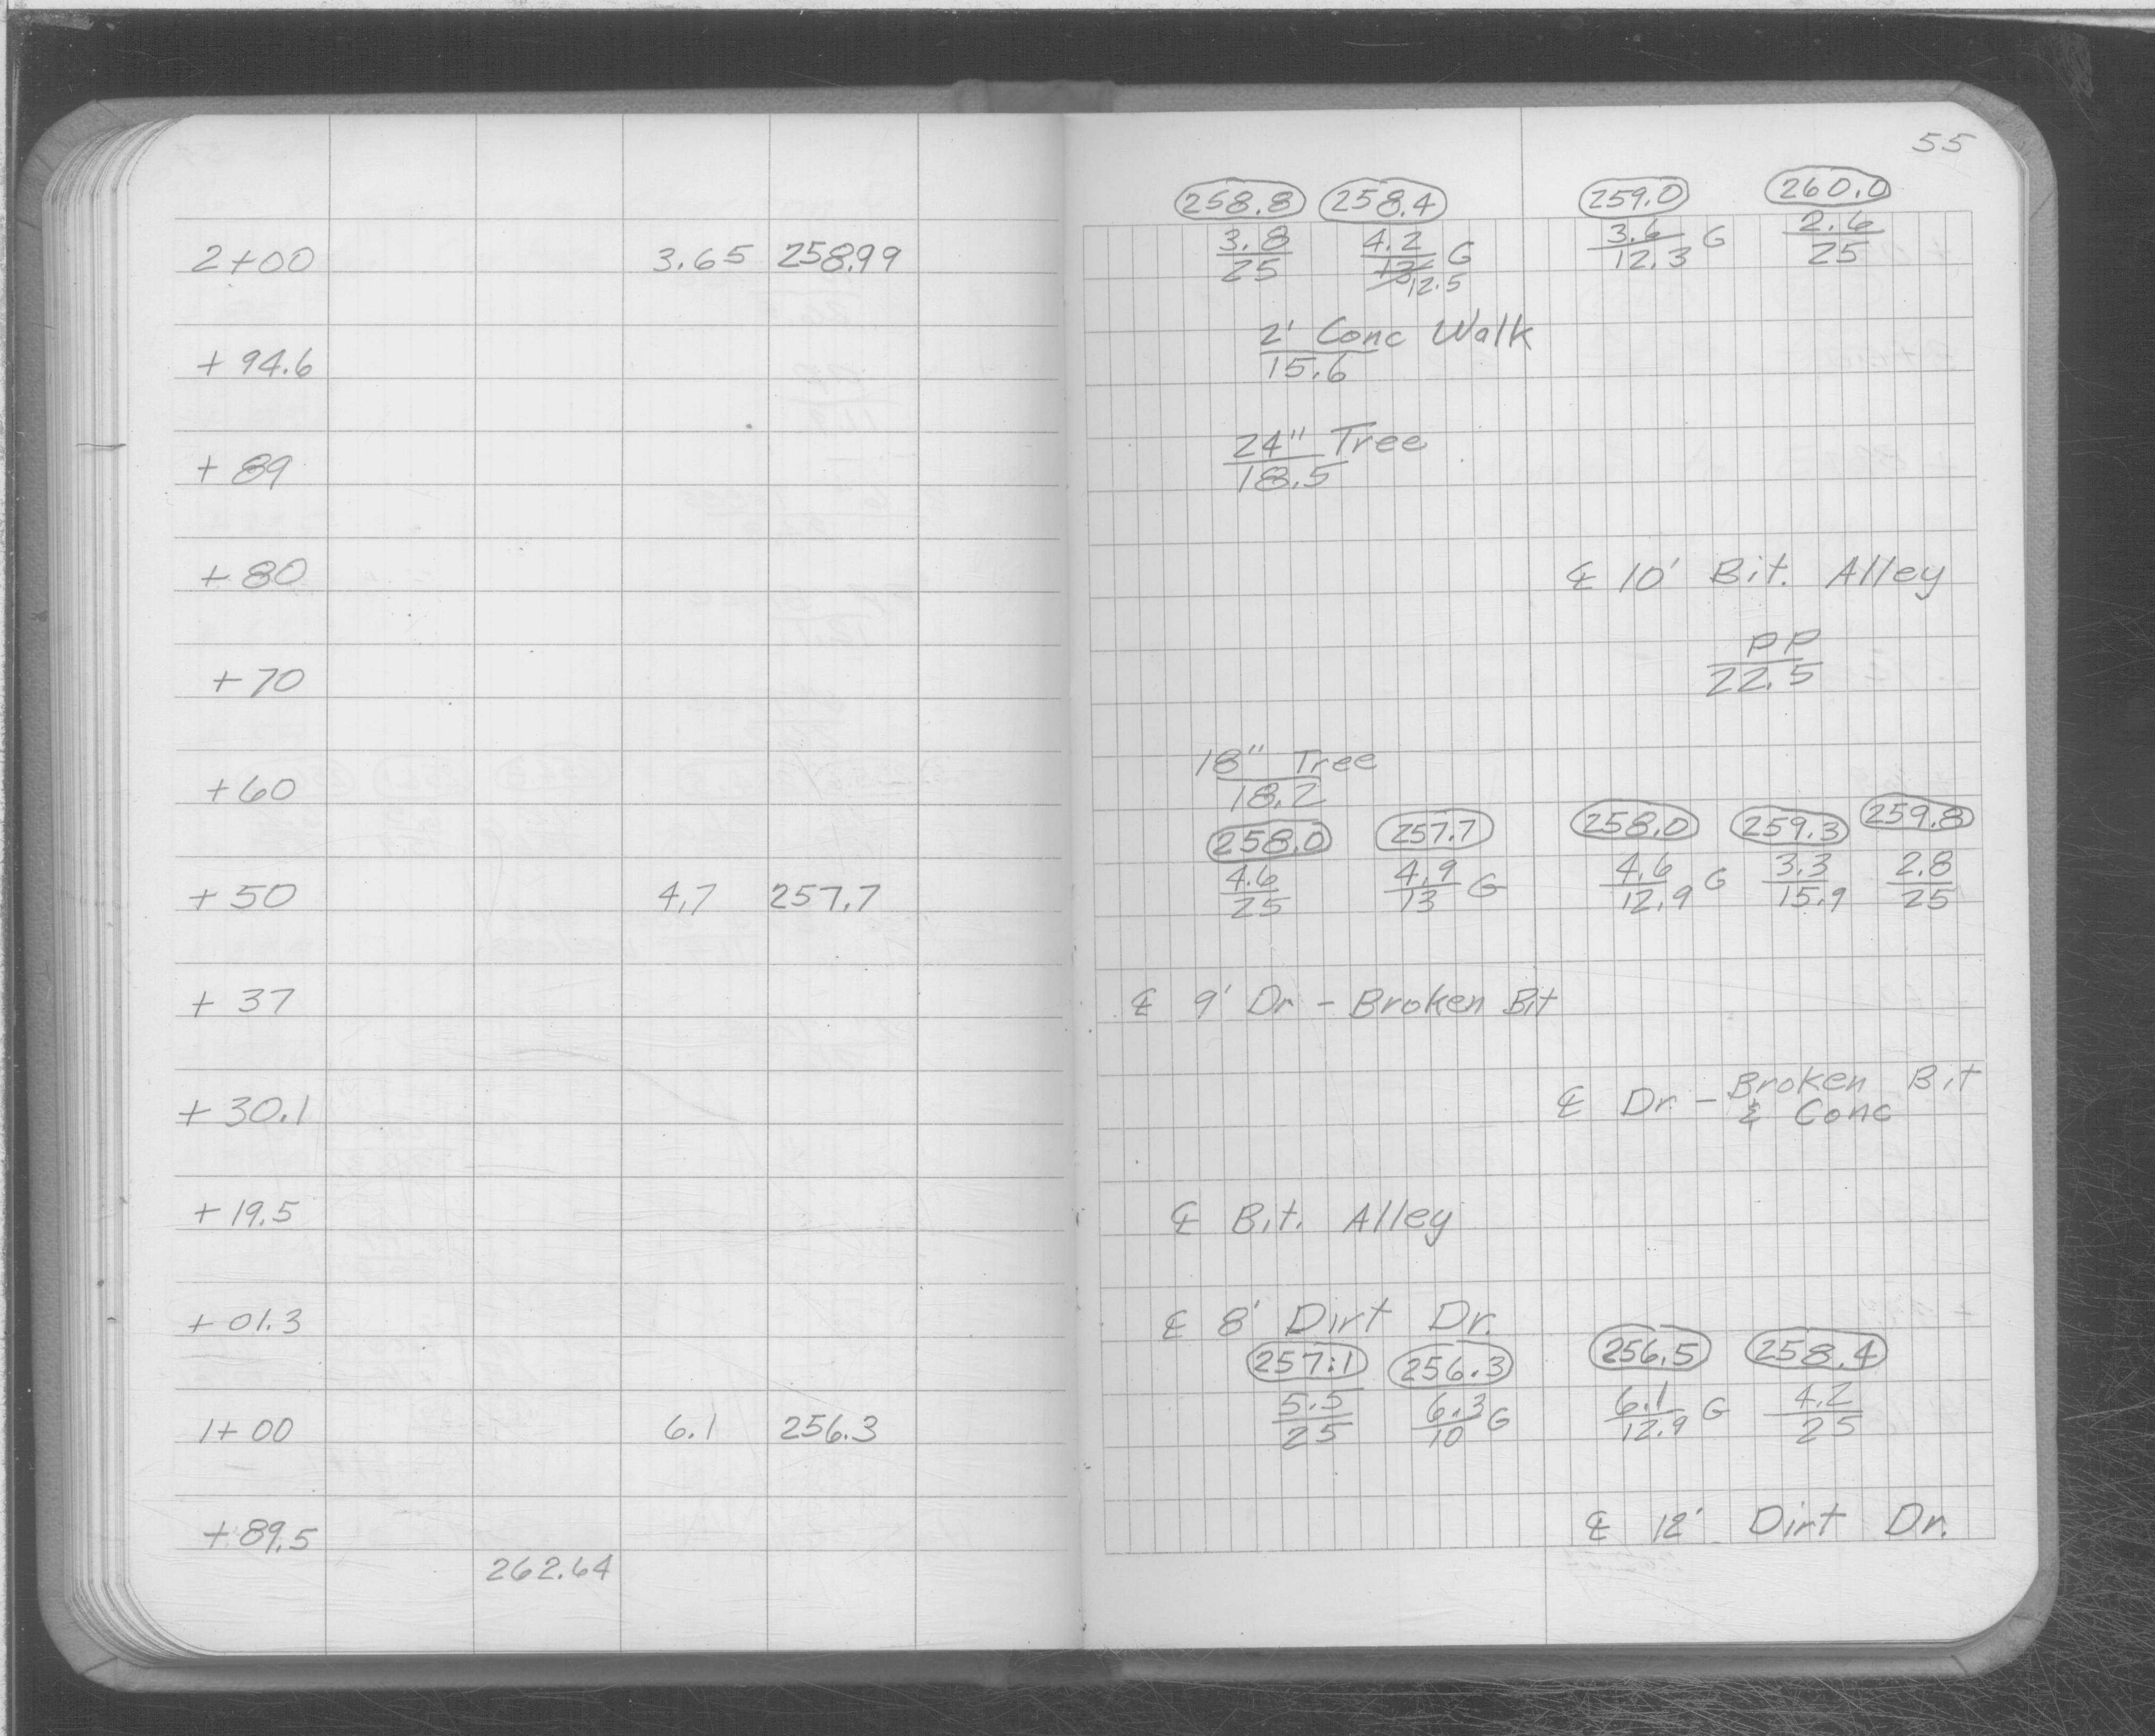 55
258.8 258.4 259.0 260.0
2+00 3.65 258.99 3.8/25 4.2/12.5 G 3.6/12.3 G 2.6/25
+94.6 2' Conc Walk/15.6
+89 24" Tree/18.5
+80 ℄ 10' Bit. Alley
+70 PP/22.5
+60 18" Tree/18.2
258.0 257.7 258.0 259.3 259.8
+50 4.7 257.7 4.6/25 4.9/13 G 4.6/12.9 G 3.3/15.9 2.8/25
+37 ℄ 9' Dr - Broken Bit
+30.1 ℄ Dr. - Broken Bit
& Conc
+19.5 ℄ Bit. Alley
+01.3 ℄ 8' Dirt Dr.
257.1 256.3 256.5 258.4
1+00 6.1 256.3 5.5/25 6.3/10 G 6.1/12.9 G 4.2/25
+89.5 ℄ 12' Dirt Dr.
262.64